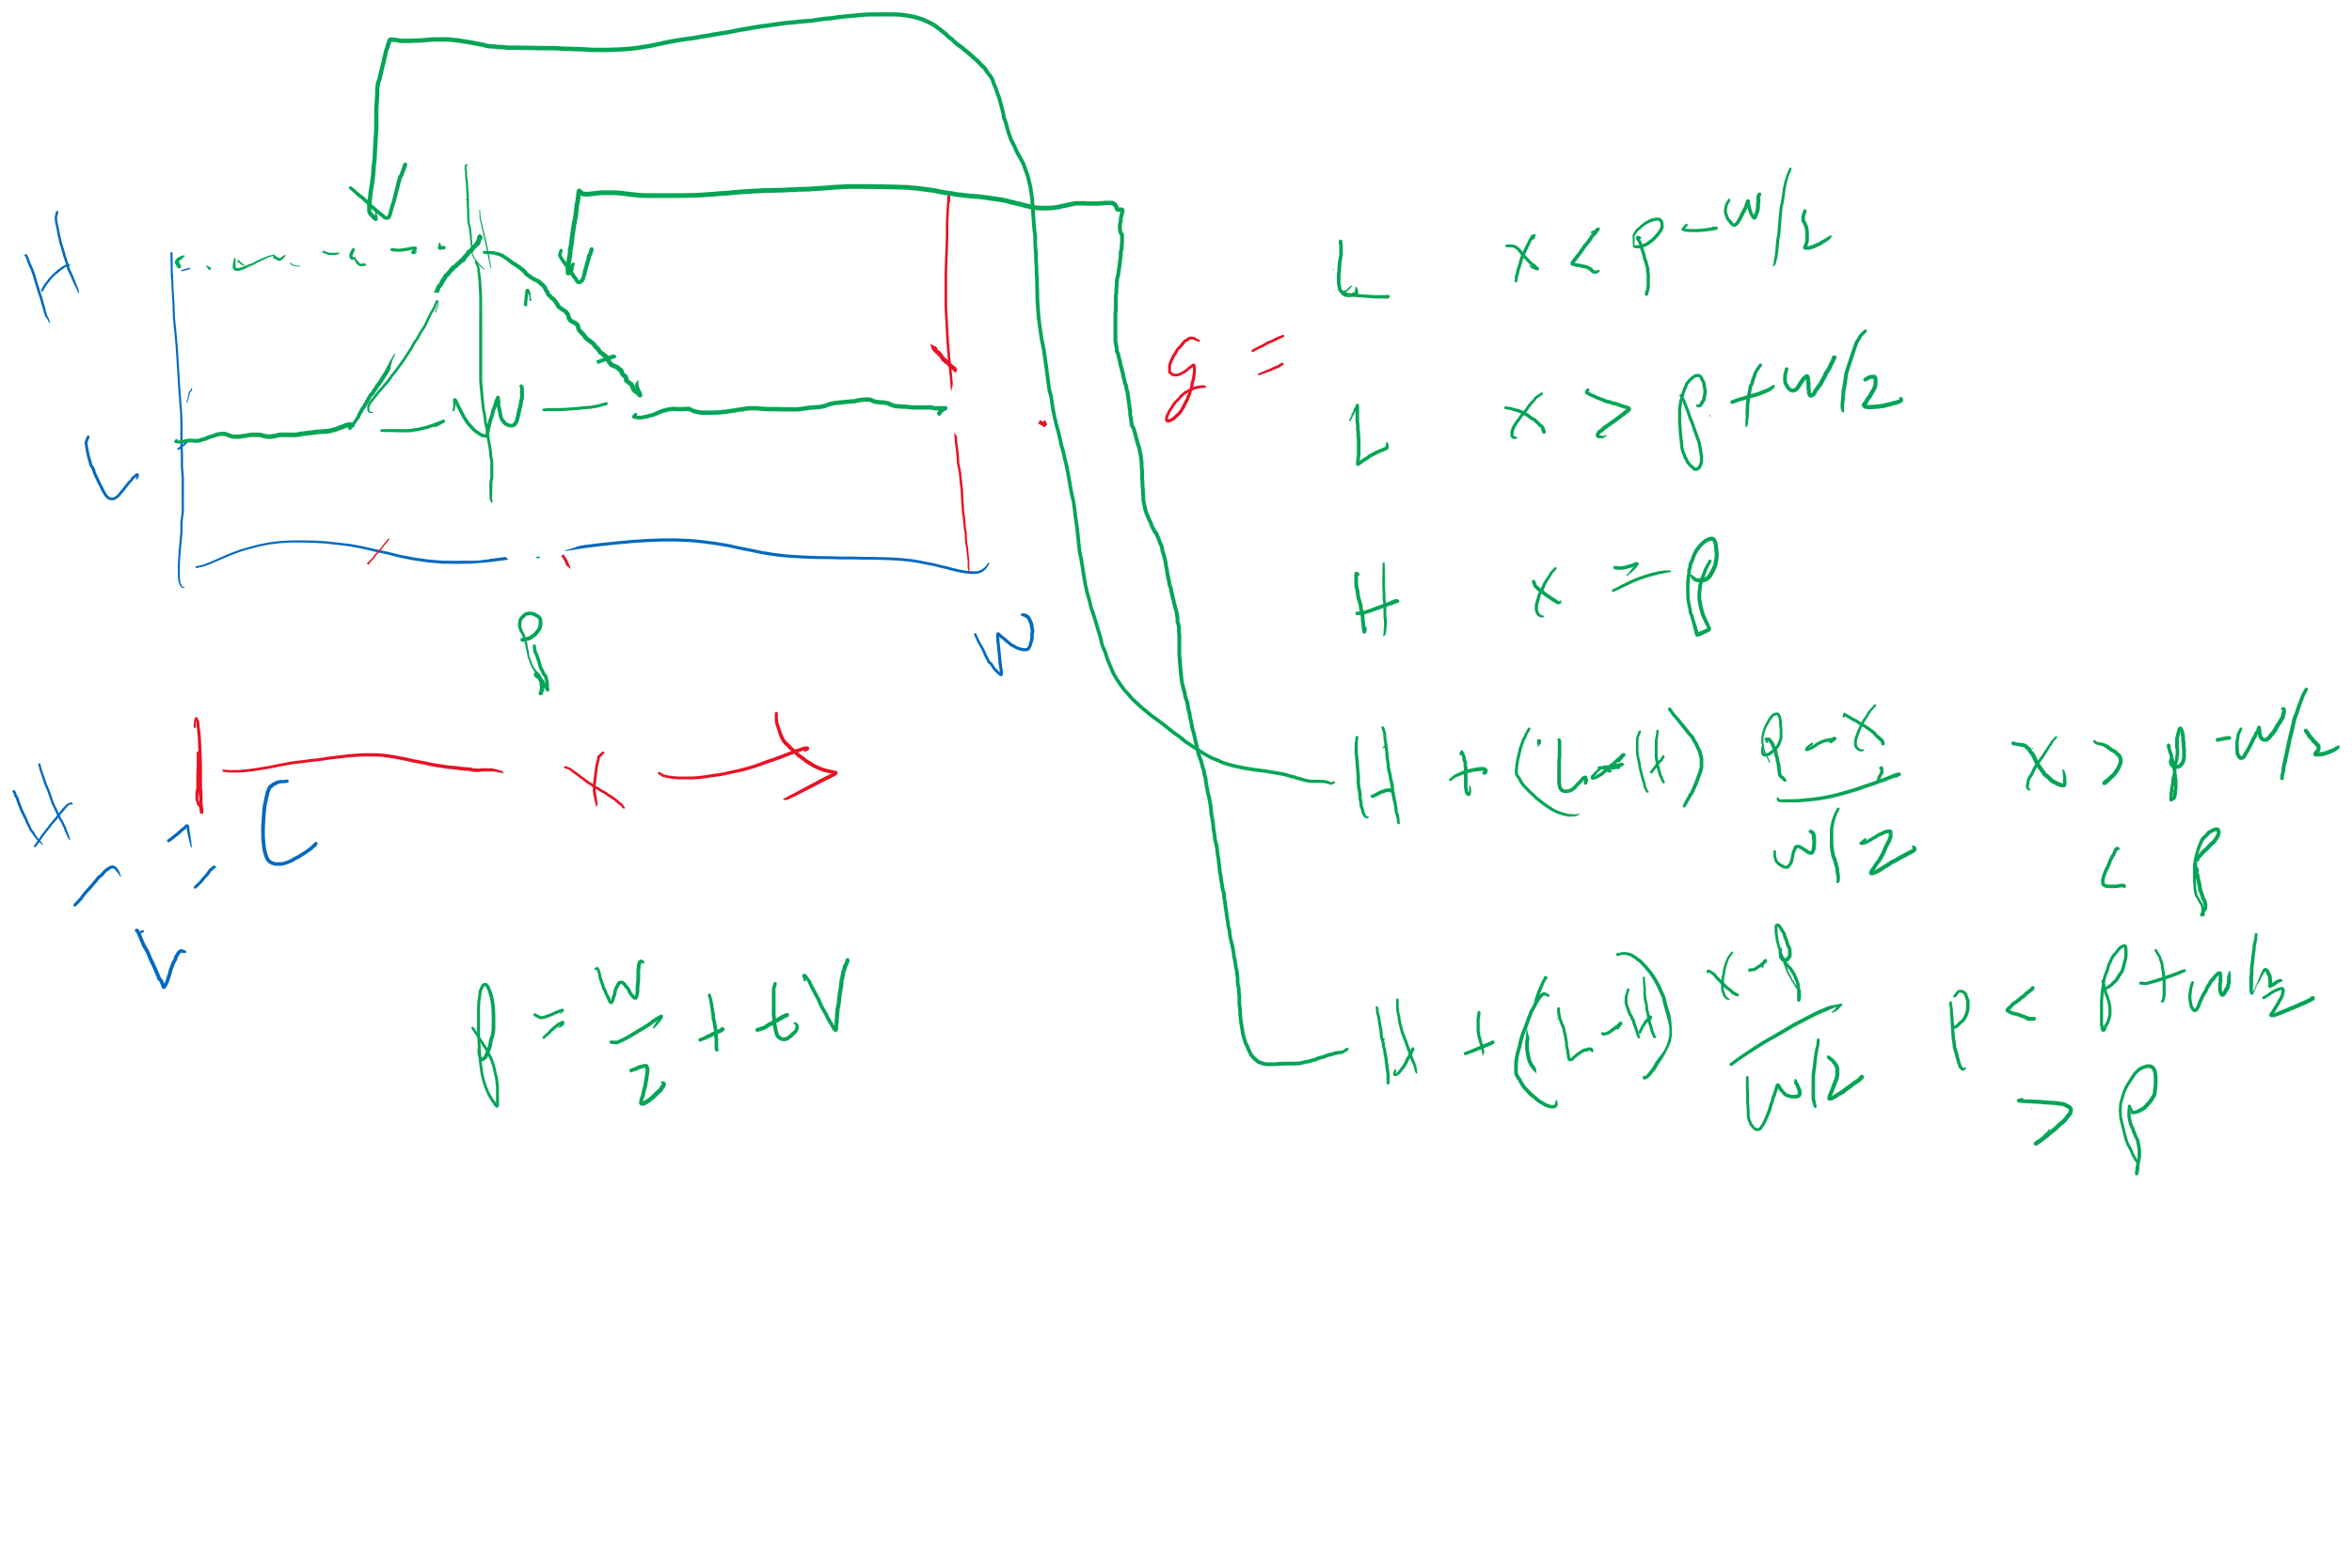 H
L
w
p
w
x
H >= L
p = w/2 + tv
g =
L x < p - w/2
L x > p + w/2
H x = p
H + (L-H) p-x / w/2 x > p - w/2
< p
H + (L-H) x-p / w/2 p < p + w/2
> p